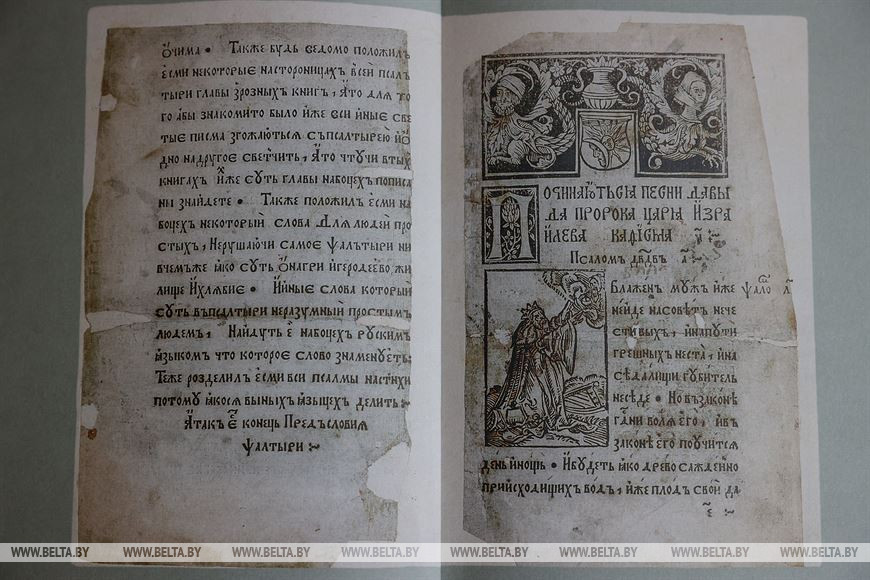 WWW.BELTA.BY WWW.BELTA.BY WWW.BELTA.BY WWW.BELTA.BY WWW.BELTA.BY WWW.BELTA.BY WWW.BELTA.BY WWW.BELTA.BY
ѻчима • Также будь ведомо положилъ
есми некоторые настороницахъ всей псал
тыри главы зрозныхъ книгъ, ато для то
го абы знакомито было иже вси иные све
тые писма згожаються съпсалтырею
дно надругое светчить, ато чтучи втыхъ
книгахъ иже суть главы набоцехъ пописа
ны знайдете • Также положилъ есми на
боцехъ некоторыи слова для людей про
стыхъ, нерушаючи самое ѱалътыри ни
вчемъже ꙗко суть ѻнагри игеродеево жи
лище ихлябие • Ииные слова которыи
суть въпсалтыри неразумныи простымъ
людемъ, найдуть е набоцехъ рускимъ
ꙗзыкомъ что которое слово знаменуеть:
Теже розделилъ есми вси псалмы настихи
потому ꙗкося выныхъ ꙗзыцехъ делить:
Атакъ е конець Предъсловия
ѱалтыри
П
очинаються песни давы
да пророка царꙗ Изра
илева кафисма а
Псаломъ дв҃двъ а
Блаженъ мужъ иже ѱало а
нейде насоветъ нече
стивыхъ, инапути
грешныхъ неста, ина
седалищи губитель
неседе • Но възаконе
гд҃ни воля его, ивъ
законе его поучится
день инощь • Ибудеть ꙗко древо саждейно
приисходищихъ водъ, иже плодъ свой да
WWW.BELTA.BY WWW.BELTA.BY WWW.BELTA.BY WWW.BELTA.BY WWW.BELTA.BY WWW.BELTA.BY WWW.BELTA.BY WWW.BELTA.BY